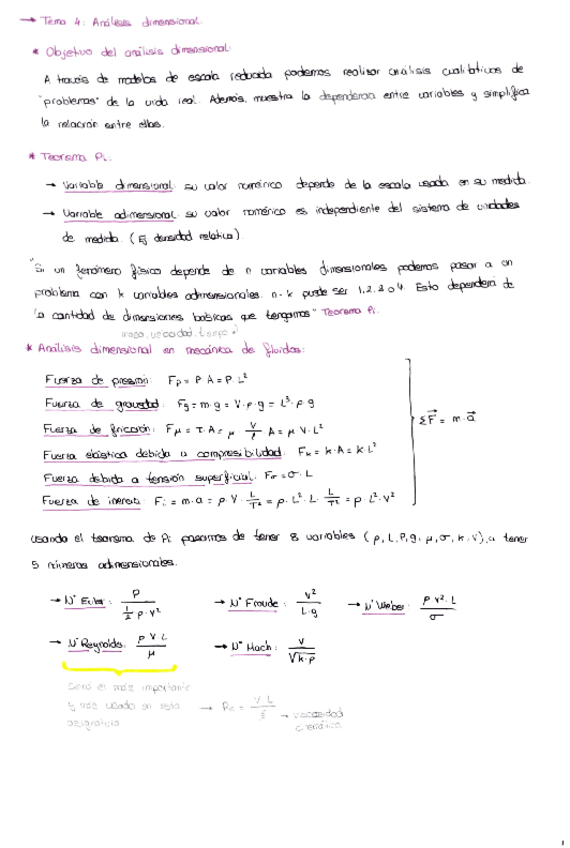 → Tema 4: Análisis dimensional.
* Objetivo del análisis dimensional:
A través de modelos de escala reducida podemos realizar análisis cualitativos de
"problemas" de la vida real. Además, muestra la dependencia entre variables y simplifica
la relación entre ellas.
* Teorema Pi:
→ Variable dimensional: su valor numérico depende de la escala usada en su medida.
→ Variable adimensional: su valor numérico es independiente del sistema de unidades
de medida. (Ej densidad relativa).
"Si un fenómeno físico depende de n variables dimensionales podemos pasar a un
problema con k variables adimensionales. n-k puede ser 1,2,3 o 4. Esto dependerá de
la cantidad de dimensiones básicas que tengamos" Teorema Pi.
* Análisis dimensional en mecánica de fluidos:
Fuerza de presión: Fp = P·A = P·L²
Fuerza de gravedad: Fg = m·g = V·ρ·g = L³·ρ·g
Fuerza de fricción: Fμ = τ·A = μ V/l A = μ·V·L²
Fuerza elástica debida a compresibilidad: Fk = k·A = k·L²
ΣF⃗ = m·a⃗
Fuerza debida a tensión superficial: Fσ = σ·L
Fuerza de inercia: Fi = m·a = ρ·V· L/T² = ρ·L²·L· L/T² = ρ·L²·V²
Usando el teorema de Pi pasamos de tener 8 variables (ρ, L, P, g, μ, σ, k, V), a tener
5 números adimensionales.
→ Nº Euler: P / ½ρ·V²
→ Nº Froude: V² / L·g
→ Nº Weber: ρ V²·L / σ
→ Nº Reynolds: ρ V L / μ
→ Nº Mach: V / √k·ρ
Será el más importante
y más usado en esta
asignatura
→ Re = V·L
→ viscosidad
cinemática